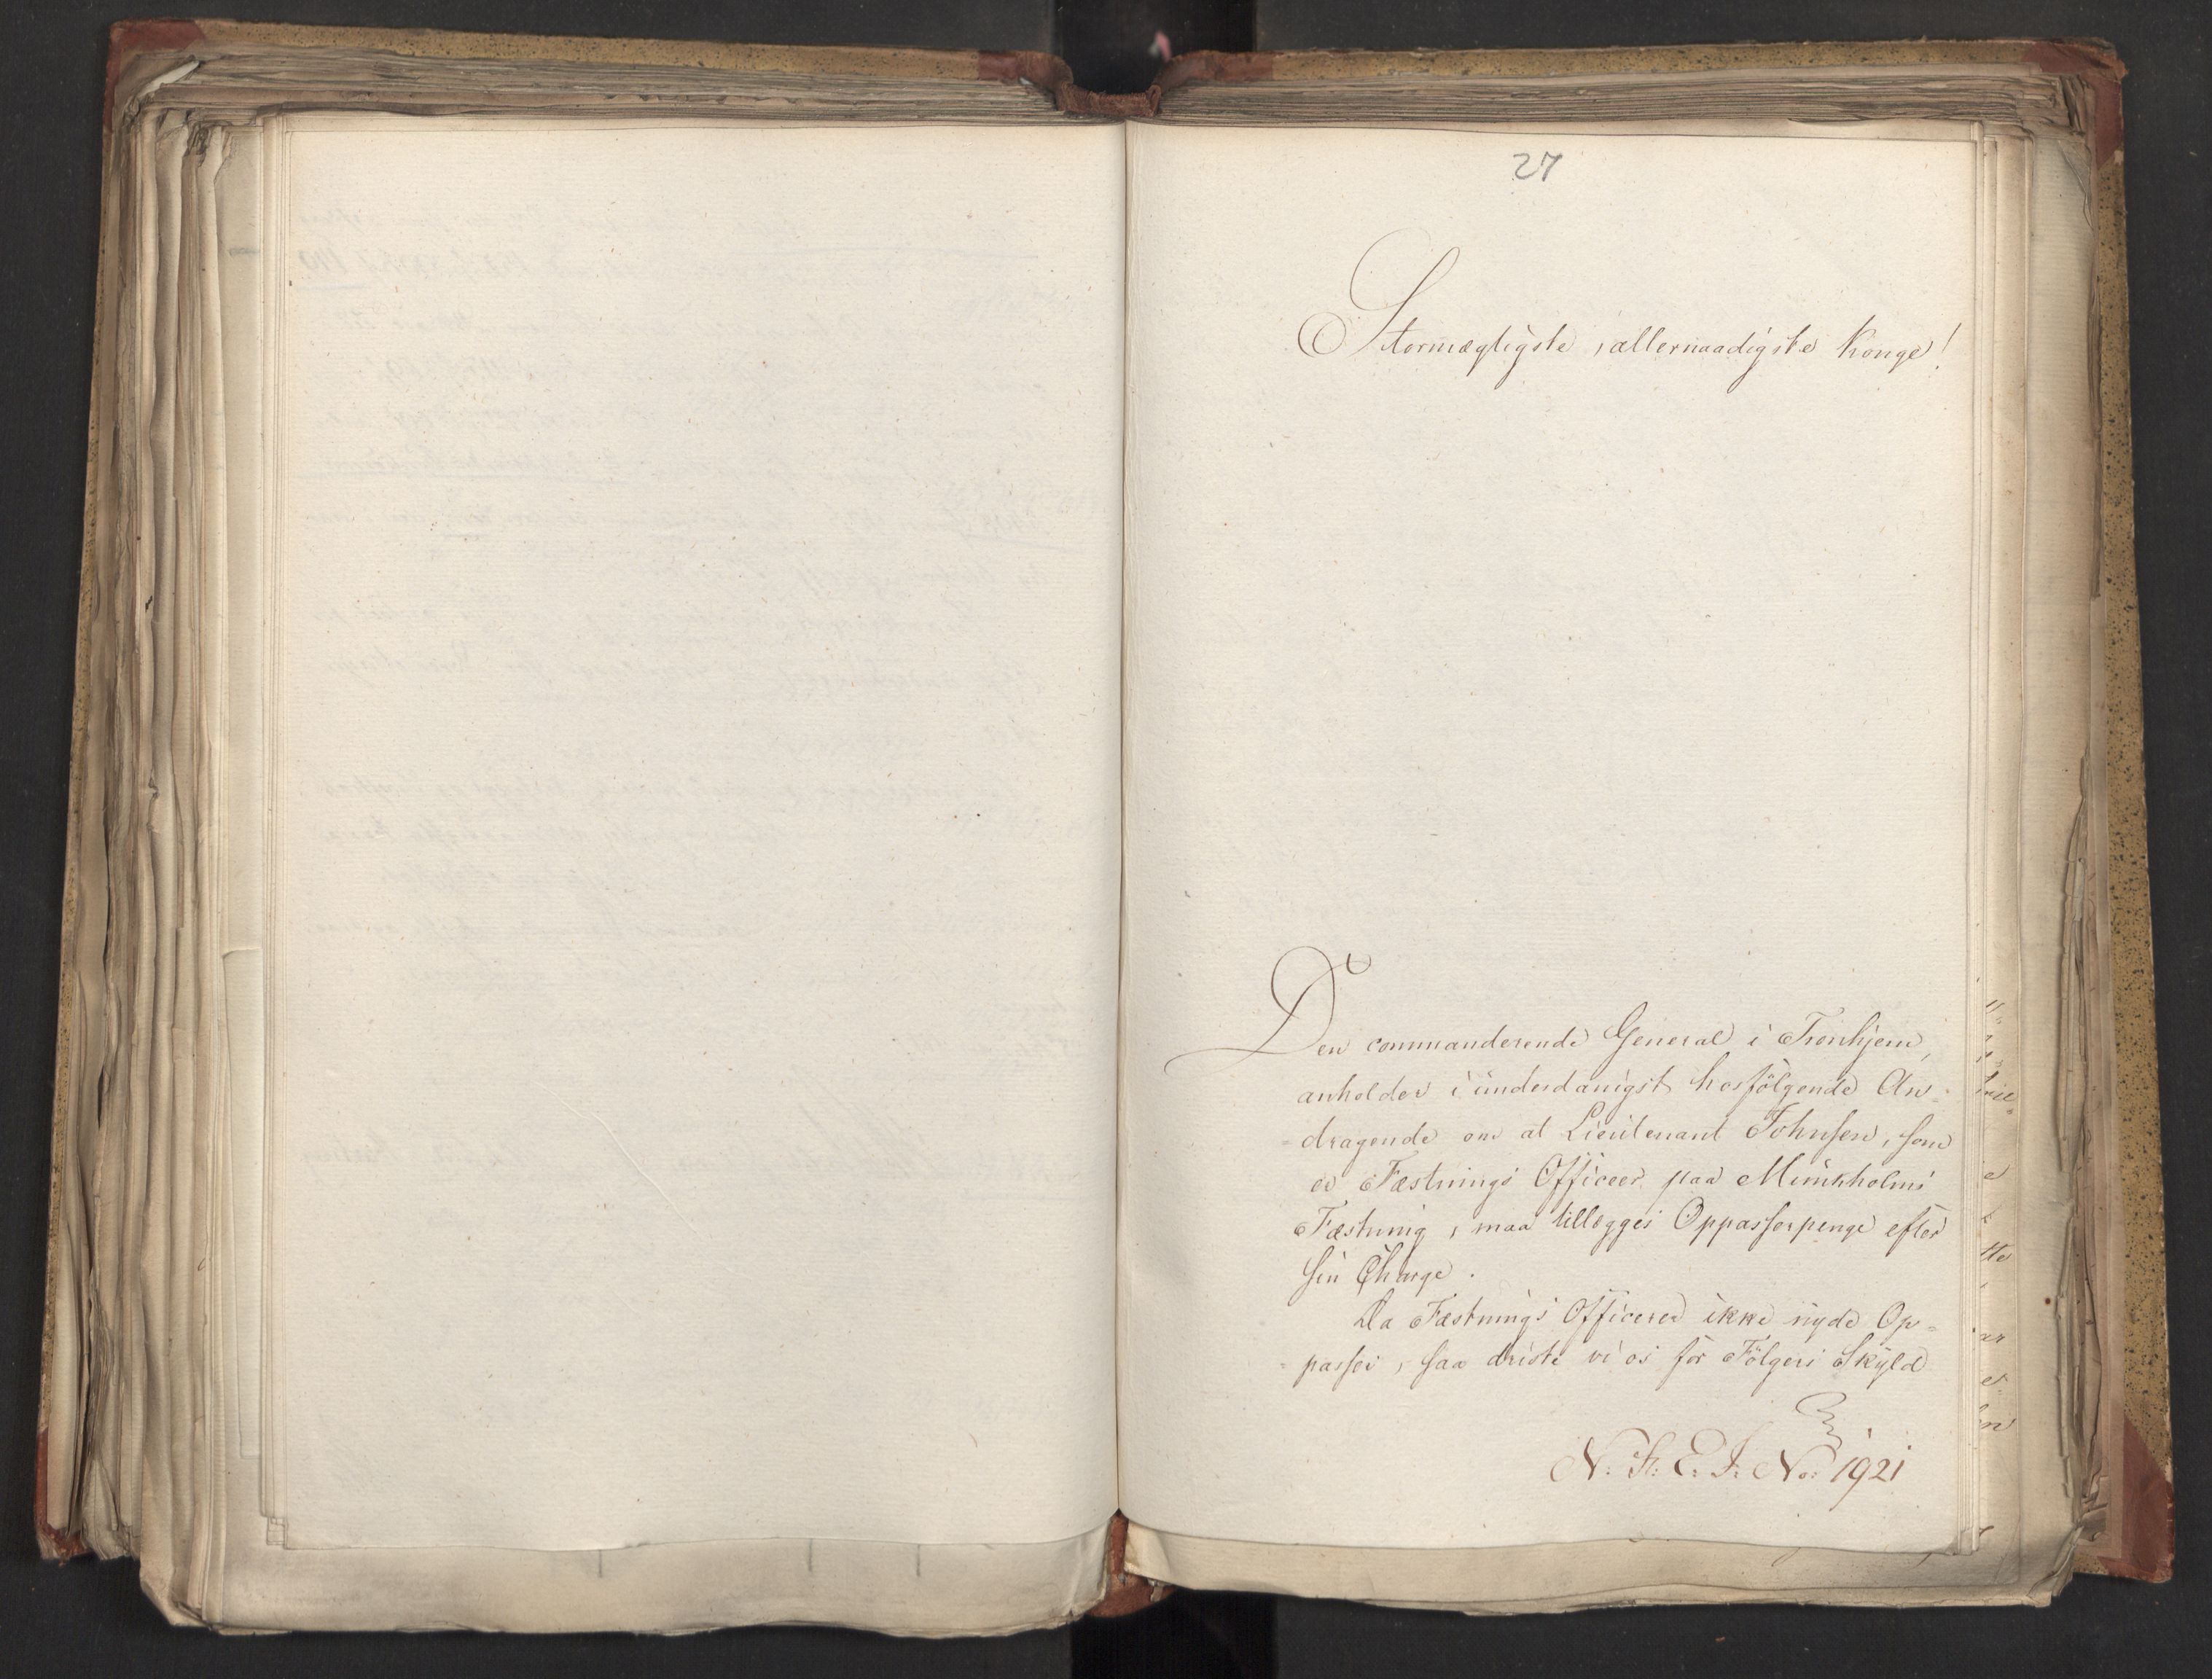 27
Stormægtigste, allernaadigste Konge!
Den commanderende General i Tronhjem,
anholder i underdanigst hosfölgende An-
-dragende om at Lieutenant Johnsen, som
er Fæstnings Officeer paa Munkholms
Fæstning, maa tillægges Oppasserpenge efter
sin Charge.
Da Fæstnings Officerer ikke nyde Op-
-passer, saa driste vi os for Fölgers Skyld
N: F: E: J: No: 1921